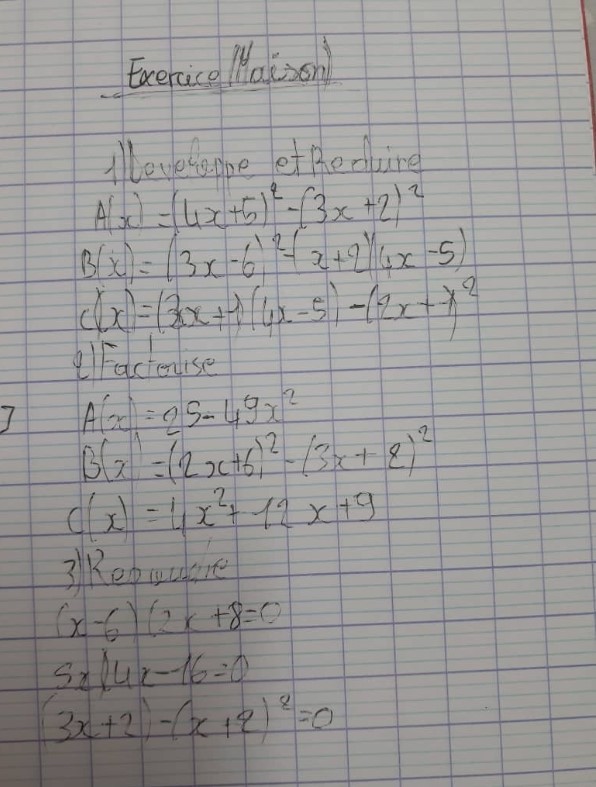 Exercice Maison
1) Developpe et Reduire
A(x) = (4x+5)² - (3x+2)²
B(x) = (3x-6)² - (x+2)(4x-5)
C(x) = (3x+1)(4x-5) - (2x+1)²
2) Factorise
A(x) = 25-49x²
B(x) = (2x+6)² - (3x+2)²
C(x) = 4x²+12x+9
3)
(x-6)(2x+8=0
5x(4x-16=0
(3x+2)-(x+2)²=0